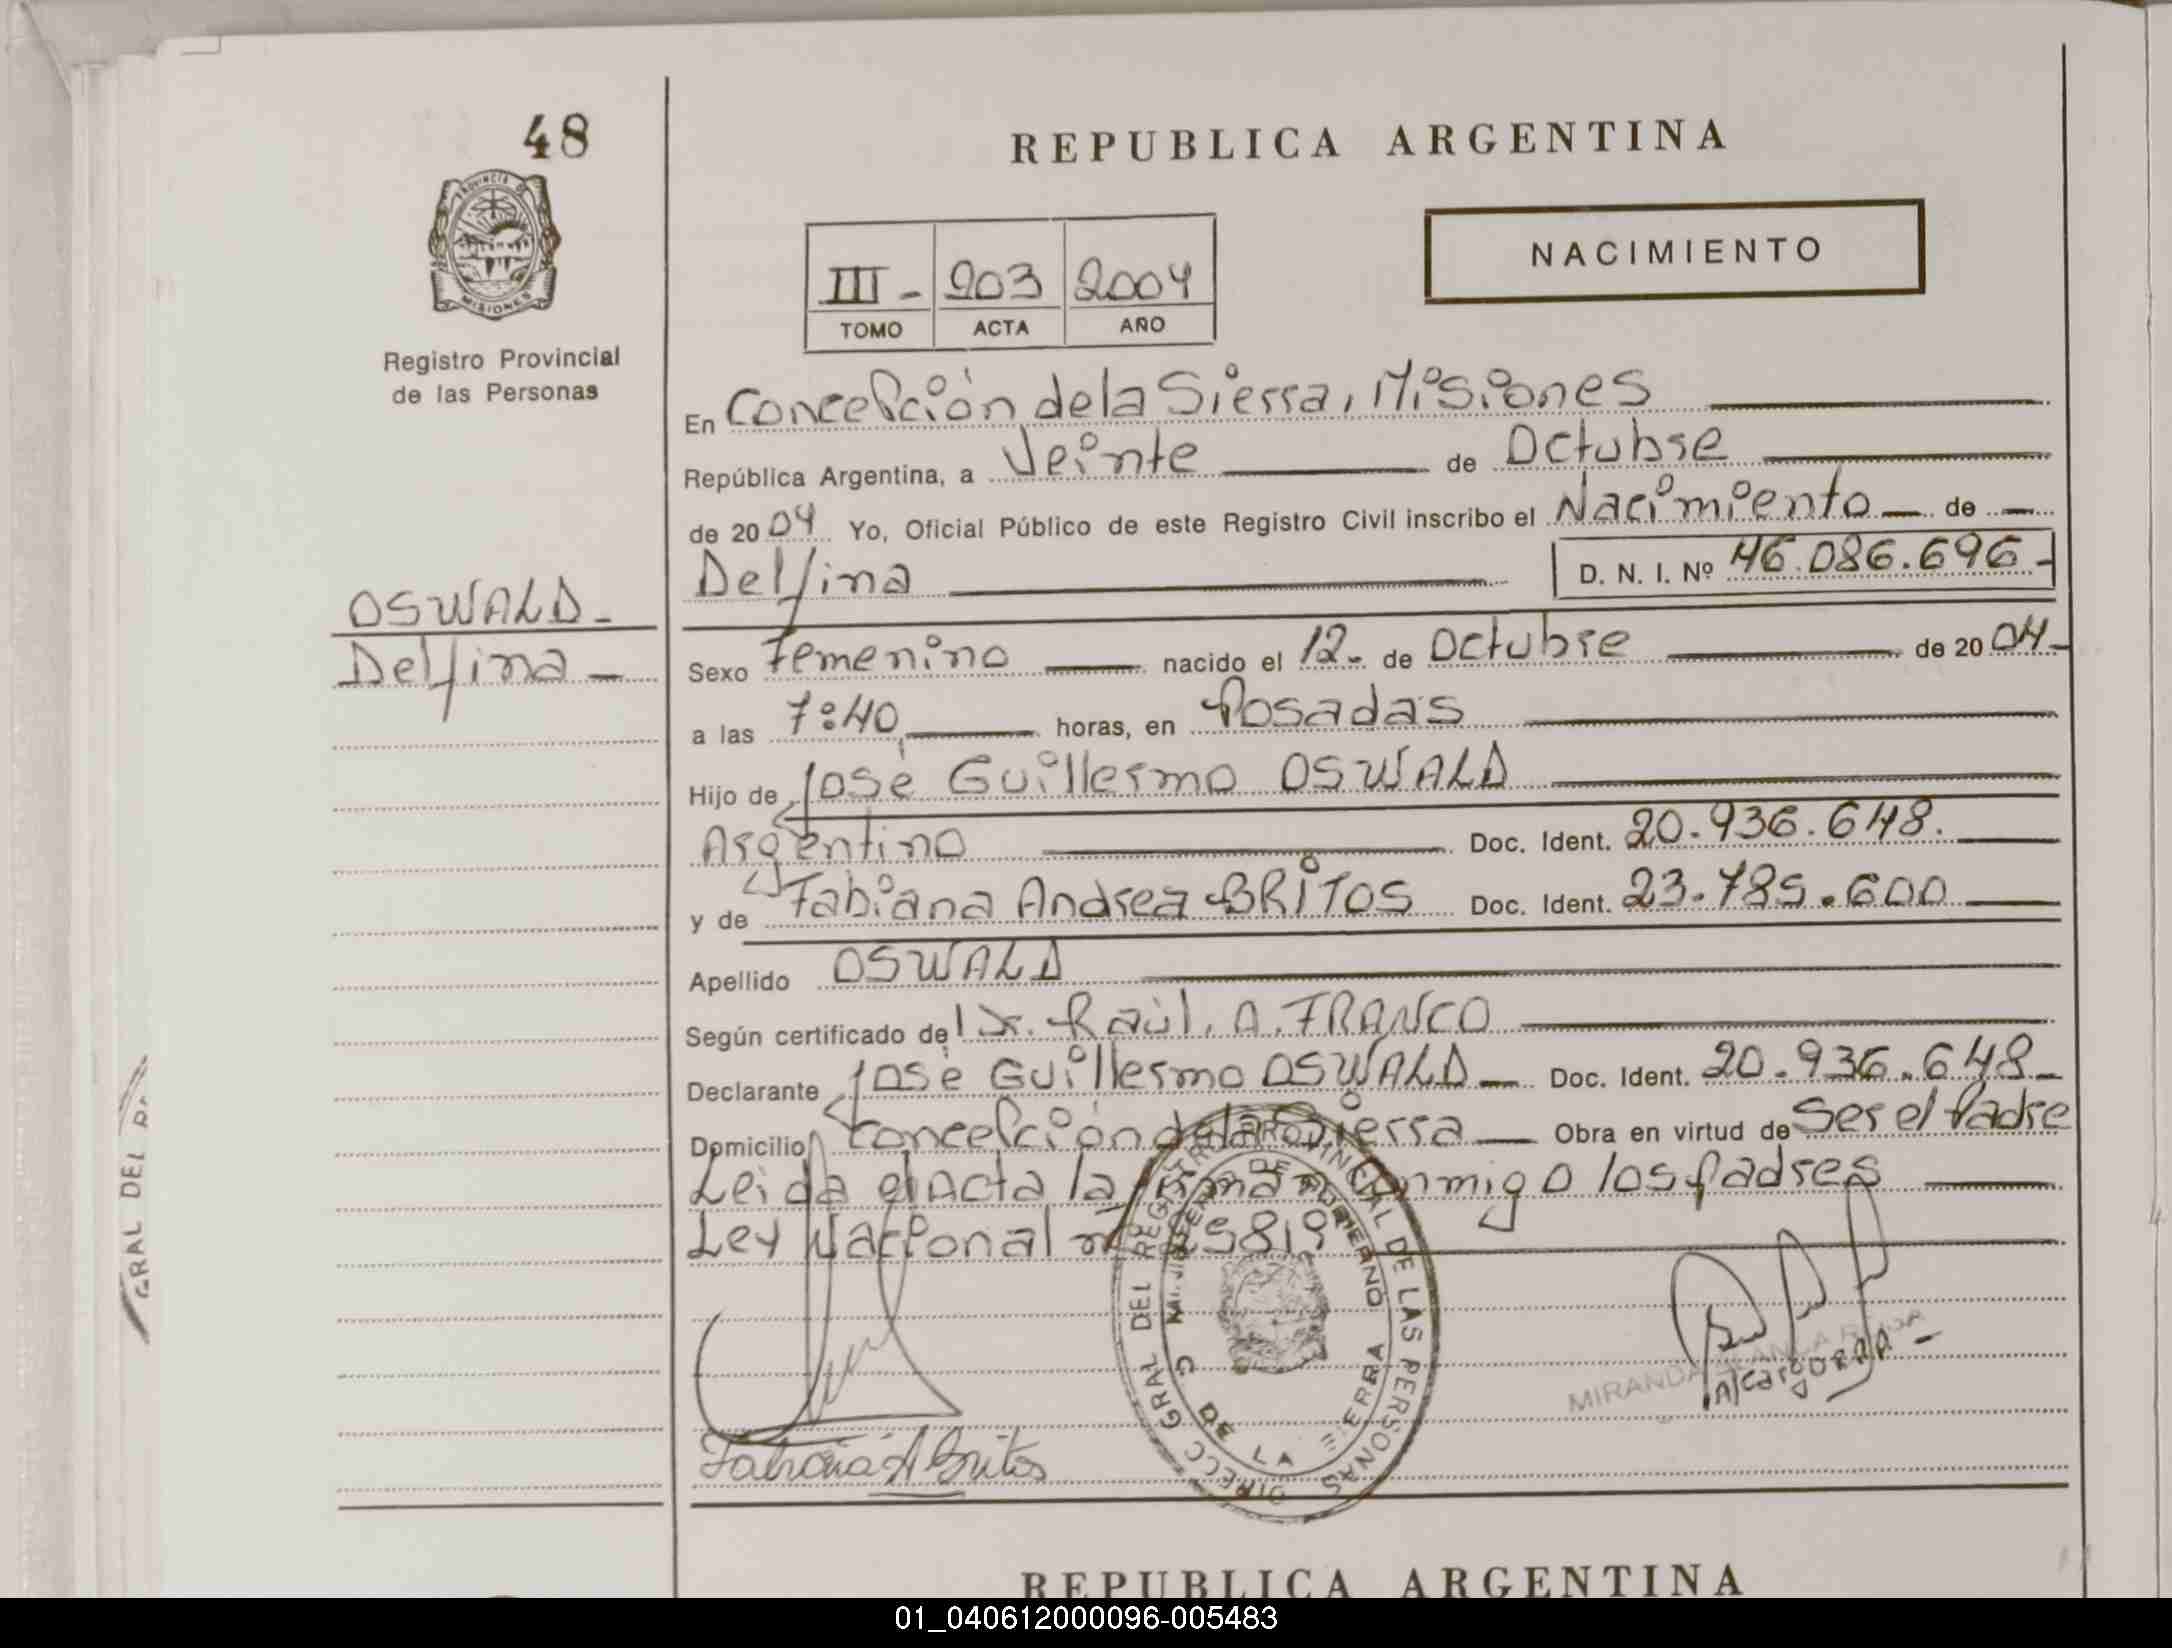 48
PROVINCIA DE
MISIONES
Registro Provincial
de las Personas
REPUBLICA ARGENTINA
NACIMIENTO
III - 203 2004
TOMO ACTA AÑO
En Concepción de la Sierra, Misiones
República Argentina, a Veinte de Octubre
de 2004 Yo, Oficial Público de este Registro Civil inscribo el Nacimiento de
Delfina D. N. I. Nº 46.086.696-
OSWALD-
Delfina-
Sexo Femenino nacido el 12- de Octubre de 2004-
a las 7:40 horas, en Posadas
Hijo de José Guillermo OSWALD
Argentino Doc. Ident. 20.936.648.
y de Fabiana Andrea BRITOS Doc. Ident. 23.785.600
Apellido OSWALD
Según certificado de Dr. Raúl. A. FRANCO
Declarante José Guillermo OSWALD Doc. Ident. 20.936.648-
Domicilio Concepción de la Sierra Obra en virtud de Ser el Padre
Leida el acta la firman conmigo los padres
Ley Nacional nº 25819
DIRECC GRAL DEL REGISTRO PROVINCIAL DE LAS PERSONAS
MINISTERIO DE GOBIERNO
C DE LA SIERRA
GRAL DEL
MIRANDA
Fabiana A Britos
REPUBLICA ARGENTINA
01_040612000096-005483